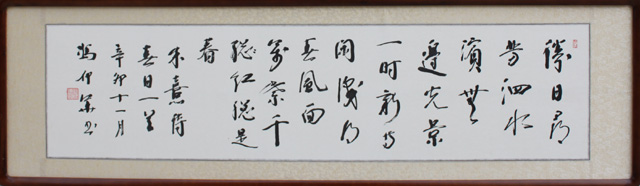 勝日尋
芳泗水
濱無
邊光景
一时新等
閑識得
东風面
萬紫千
總红總是
春
朱熹詩
春日一首
辛卯十一月
书